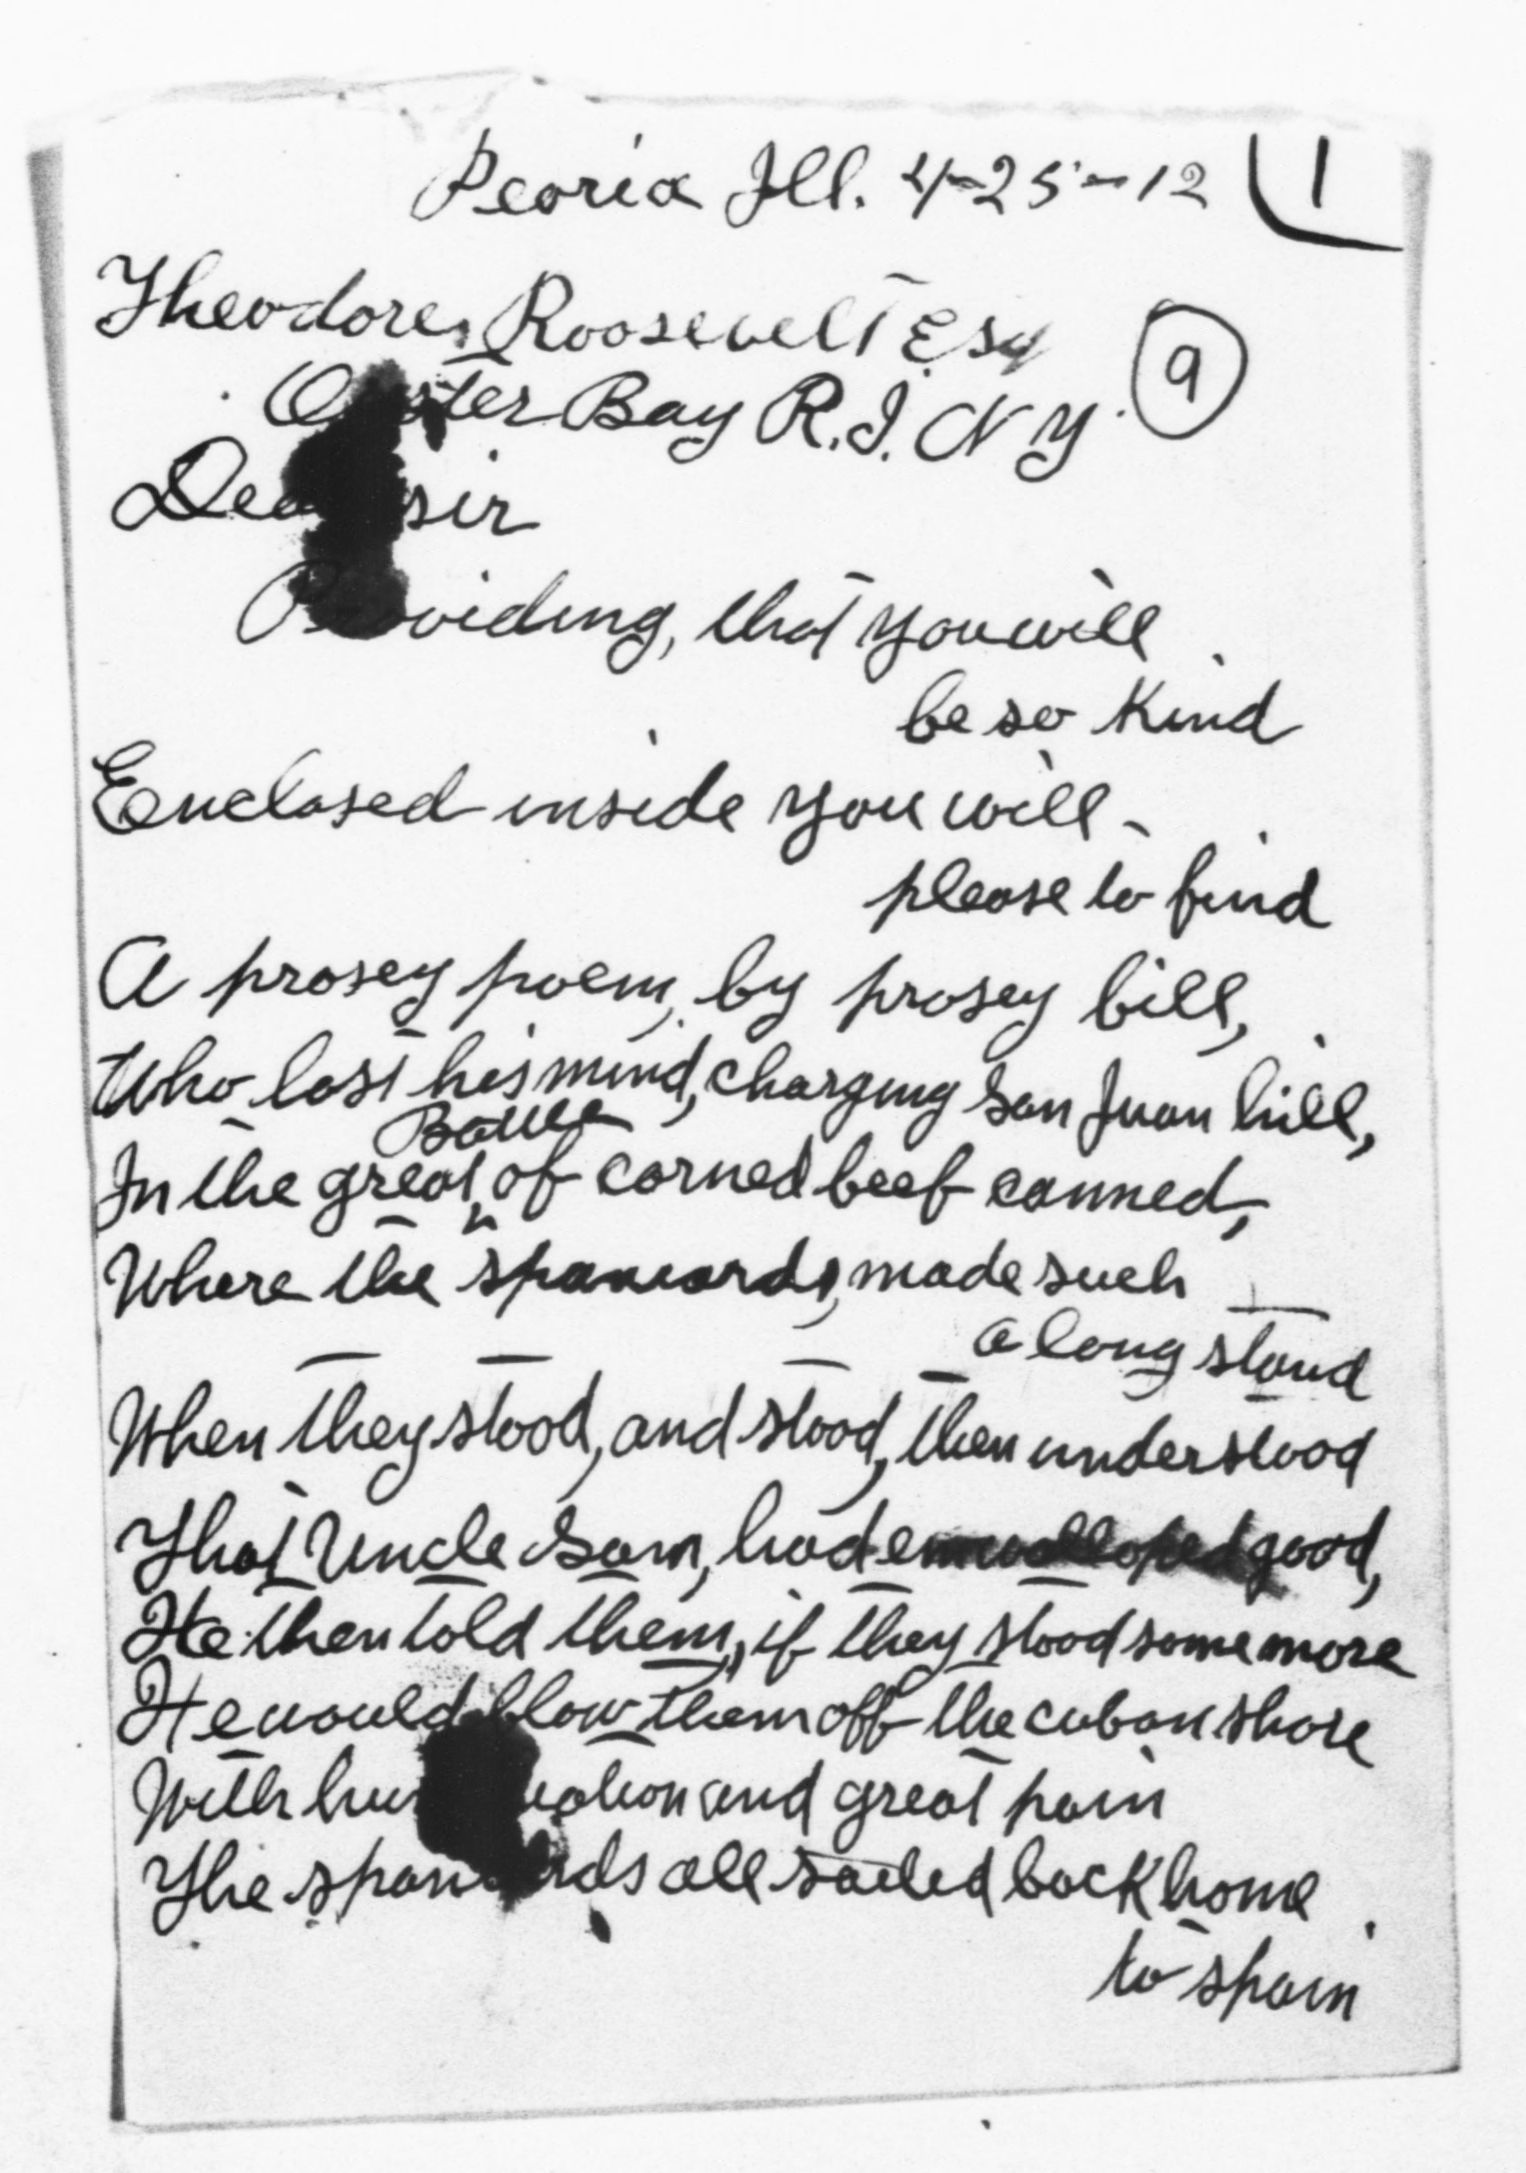 Peoria Ill. 4-25-12
1
Theodore, Roosevelt Esq
9
Oyster Bay R.I. N Y
Dear sir
Providing, that you will
be so Kind
Eenclosed inside you will
please to find
A prosey poem, by prosey bill,
Who lost his mind, charging San Juan hill,
Battle
In the great of corned beef canned,
Where the spaniards, made such
a long stand
When they stood, and stood, then understood
That Uncle Sam, had good,
He then told them, if they stood some more
He would blow them off the cuban shore
With and great pain
The spaniards all sailed back home
to spain